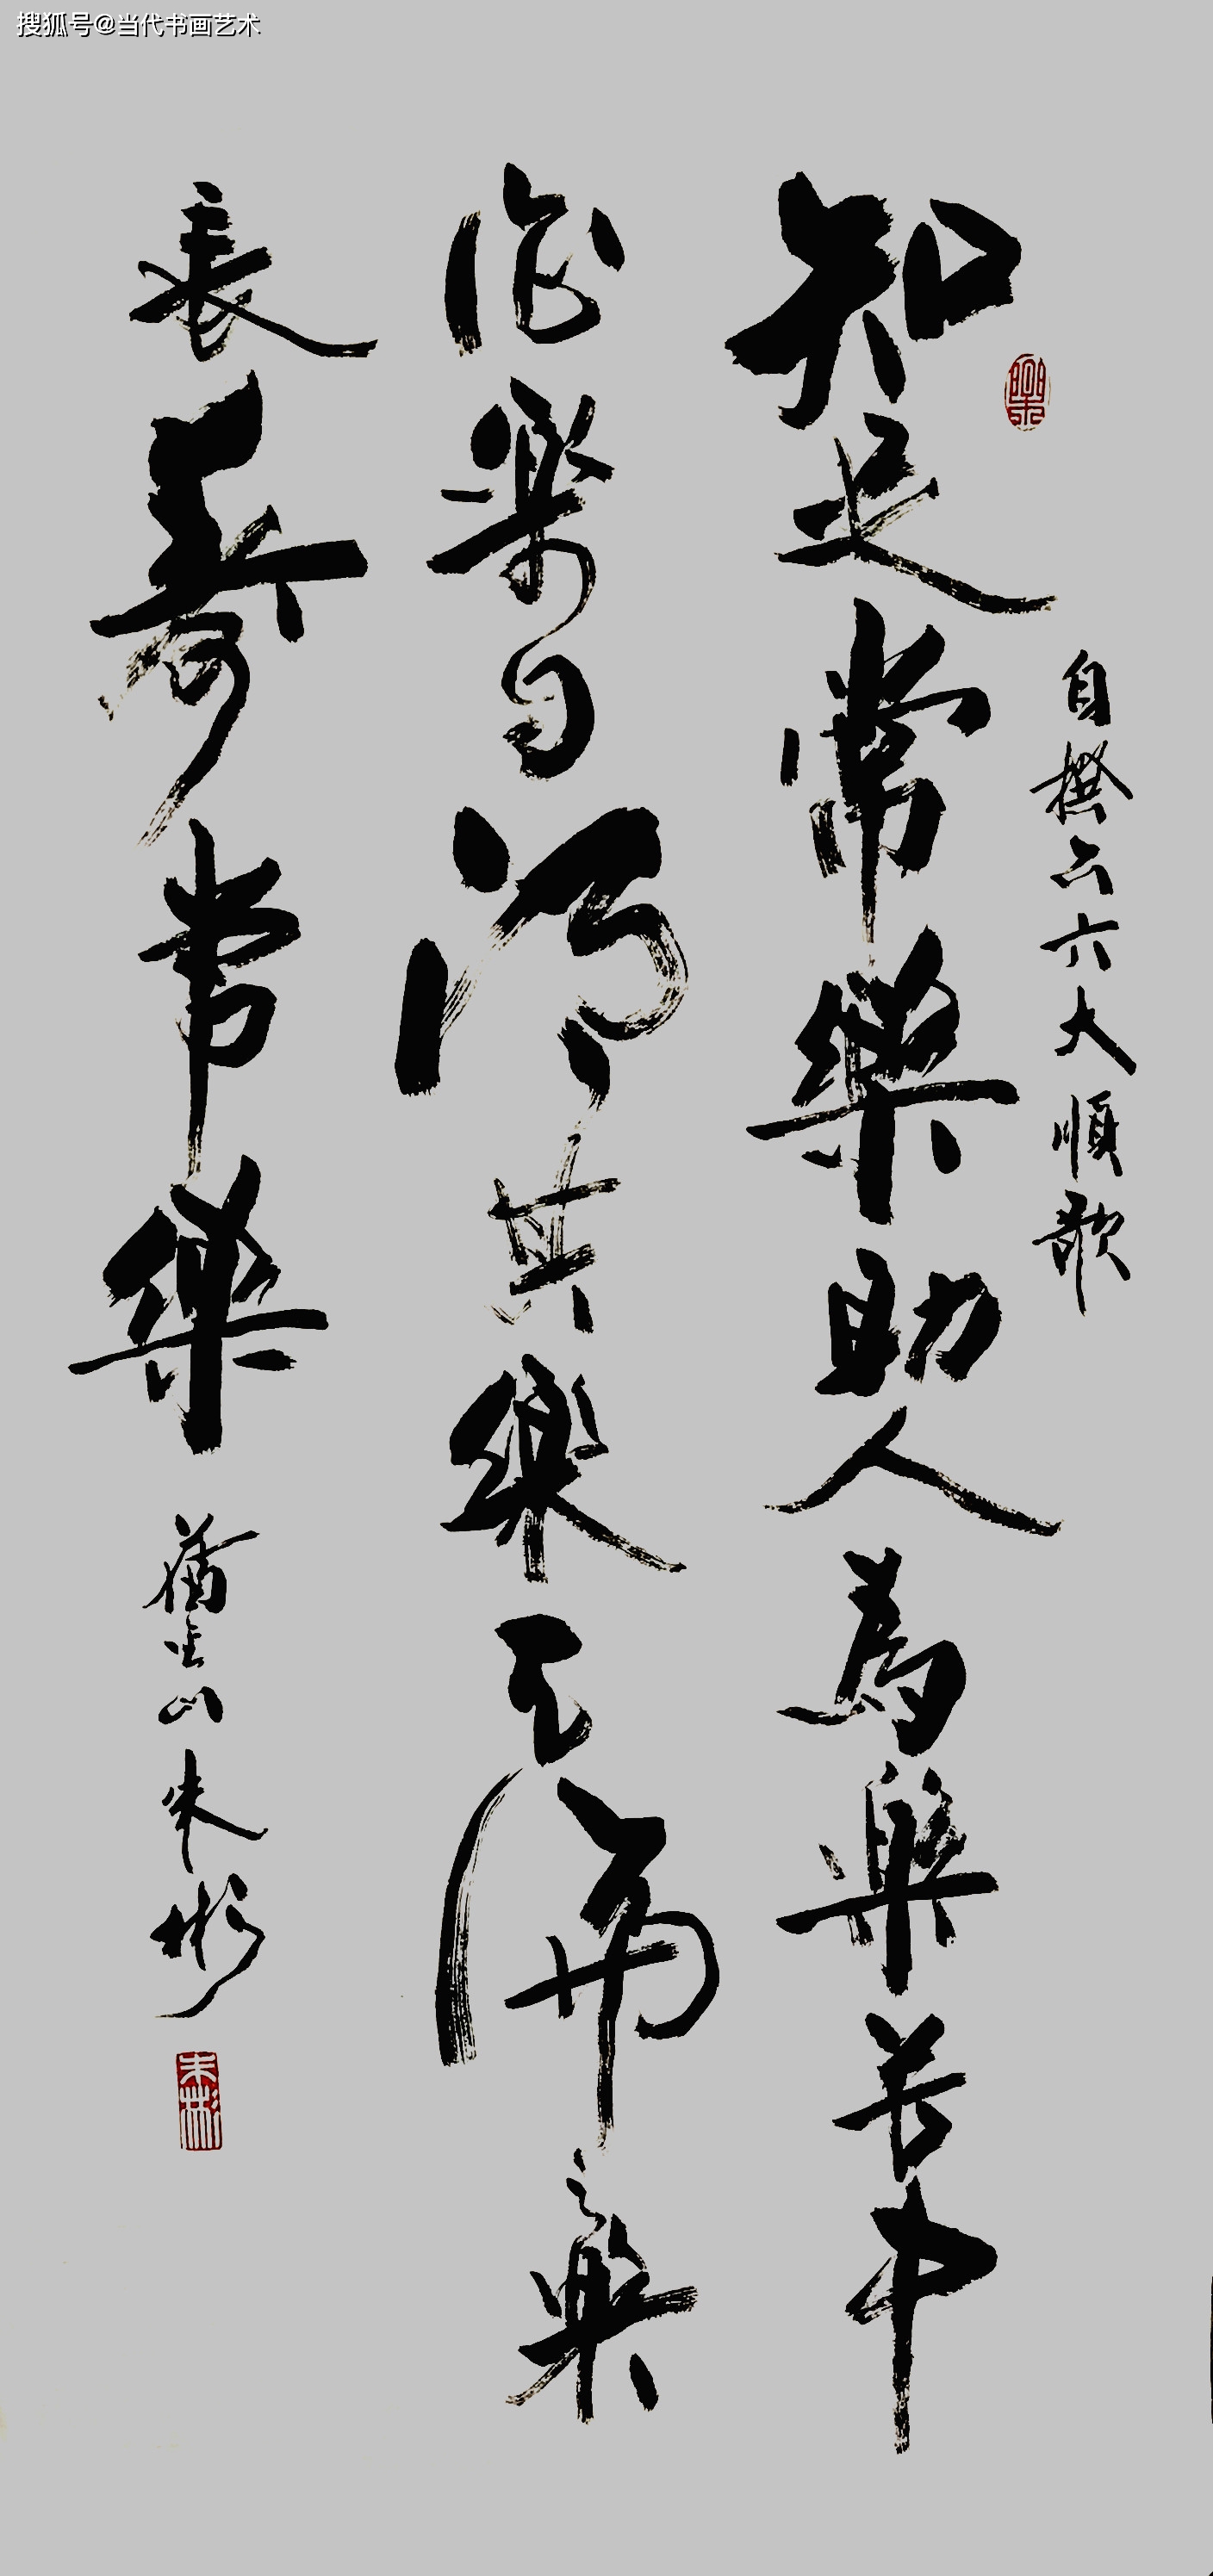 搜狐号@当代书画艺术
自撰六六大順歌
知足常樂助人為樂苦中
作樂自得其樂天倫之樂
長壽常樂
山朱彬
朱彬